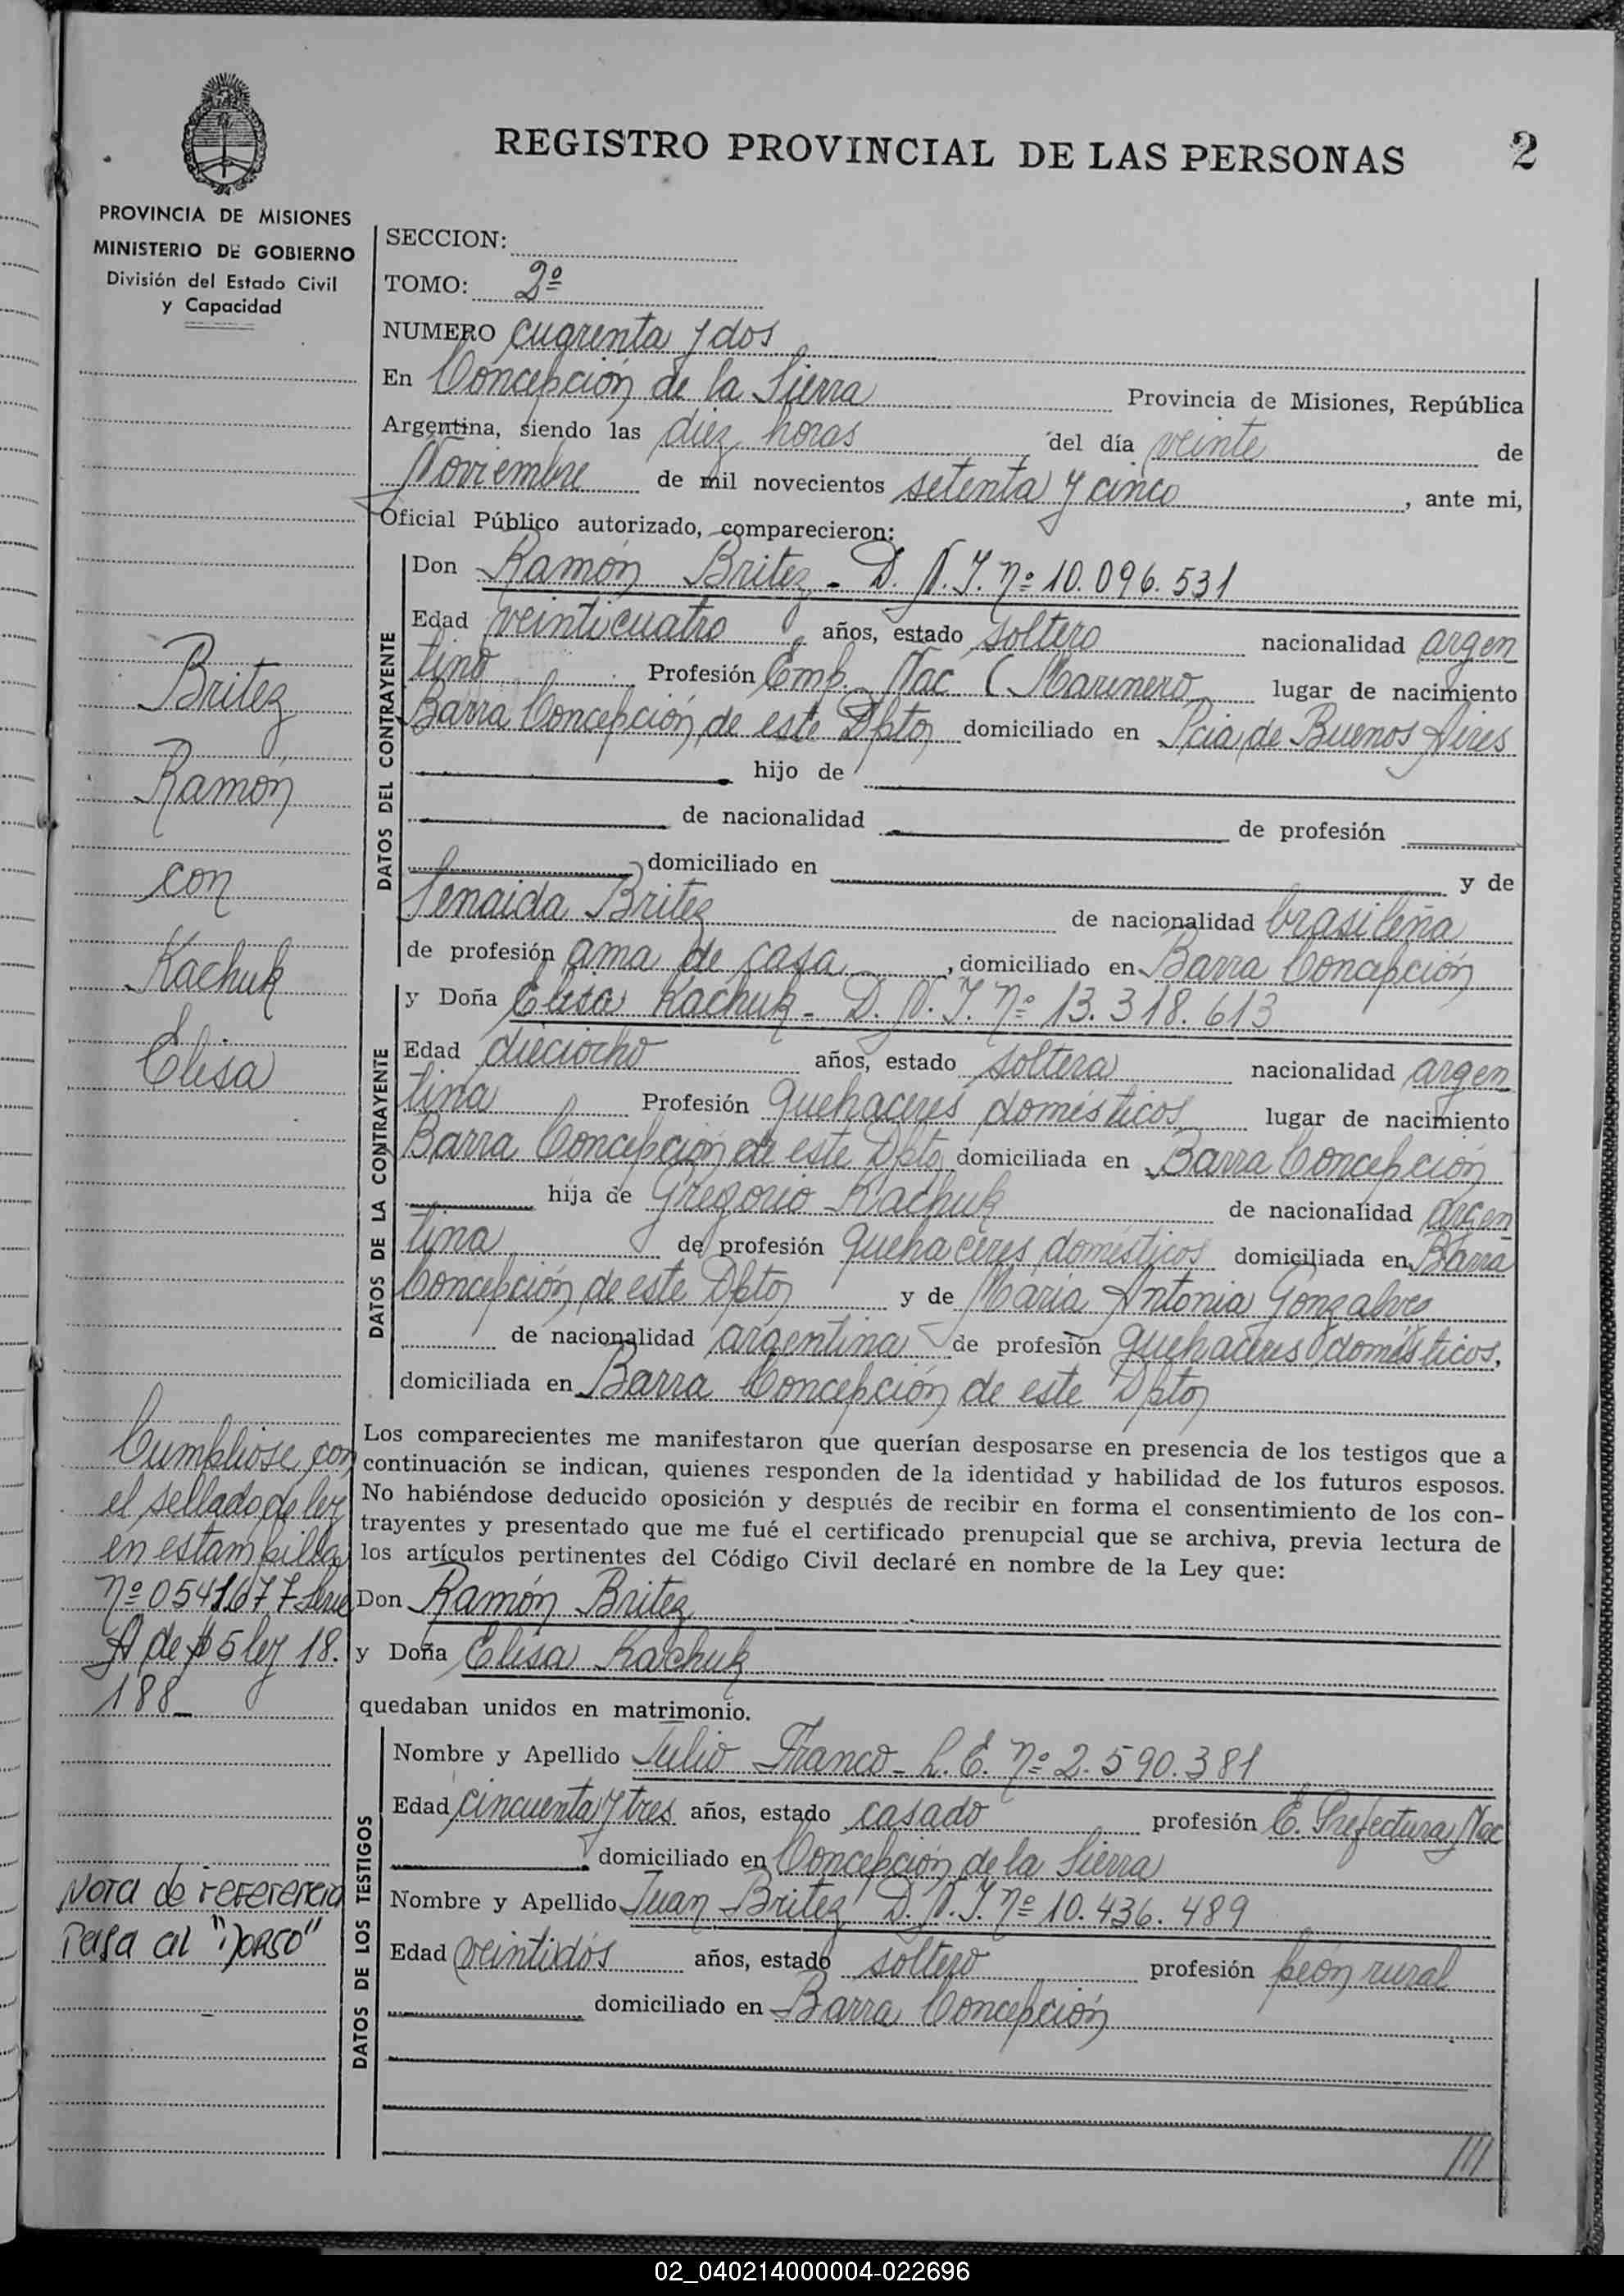 REGISTRO PROVINCIAL DE LAS PERSONAS
2
PROVINCIA DE MISIONES
MINISTERIO DE GOBIERNO
División del Estado Civil
y Capacidad
SECCION:
TOMO: 2º
NUMERO cuarenta y dos
En Concepción de la Sierra Provincia de Misiones, República
Argentina, siendo las diez horas del día veinte de
Noviembre de mil novecientos setenta y cinco, ante mi,
Oficial Público autorizado, comparecieron:
DATOS DEL CONTRAYENTE
Don Ramón Britez - D. N. I. Nº 10.096.531
Edad veinticuatro años, estado soltero nacionalidad argen
tino Profesión Emp. Nac (Marinero lugar de nacimiento
Barra Concepción de este Dpto domiciliado en Pcia de Buenos Aires
hijo de
de nacionalidad de profesión
domiciliado en y de
Senaida Britez de nacionalidad brasileña
de profesión ama de casa, domiciliado en Barra Concepción
DATOS DE LA CONTRAYENTE
y Doña Elisa Kachuk - D. N. I. Nº 13.318.613
Edad dieciocho años, estado soltera nacionalidad argen
tina Profesión quehaceres domésticos lugar de nacimiento
Barra Concepción de este Dpto domiciliada en Barra Concepción
hija de Gregorio Kachuk de nacionalidad argen
tina de profesión quehaceres domésticos domiciliada en Barra
Concepción de este Dpto y de Maria Antonia Gonzalves
de nacionalidad argentina de profesión quehaceres domésticos,
domiciliada en Barra Concepción de este Dpto
Los comparecientes me manifestaron que querían desposarse en presencia de los testigos que a
continuación se indican, quienes responden de la identidad y habilidad de los futuros esposos.
No habiéndose deducido oposición y después de recibir en forma el consentimiento de los con-
trayentes y presentado que me fué el certificado prenupcial que se archiva, previa lectura de
los artículos pertinentes del Código Civil declaré en nombre de la Ley que:
Don Ramón Britez
y Doña Elisa Kachuk
quedaban unidos en matrimonio.
DATOS DE LOS TESTIGOS
Nombre y Apellido Julio Franco - L. E. Nº 2.590.381
Edad cincuenta y tres años, estado casado profesión E. Prefectura Nac
domiciliado en Concepción de la Sierra
Nombre y Apellido Juan Britez D. N. I. Nº 10.436.489
Edad veintidós años, estado soltero profesión peón rural
domiciliado en Barra Concepción
///
Britez
Ramón
con
Kachuk
Elisa
Cumpliose con
el sellado de ley
en estampilla
Nº 0541677 Serie
A de $ 5 ley 18.
188_
Nota de referencia
Pasa al "Dorso"
02_040214000004-022696